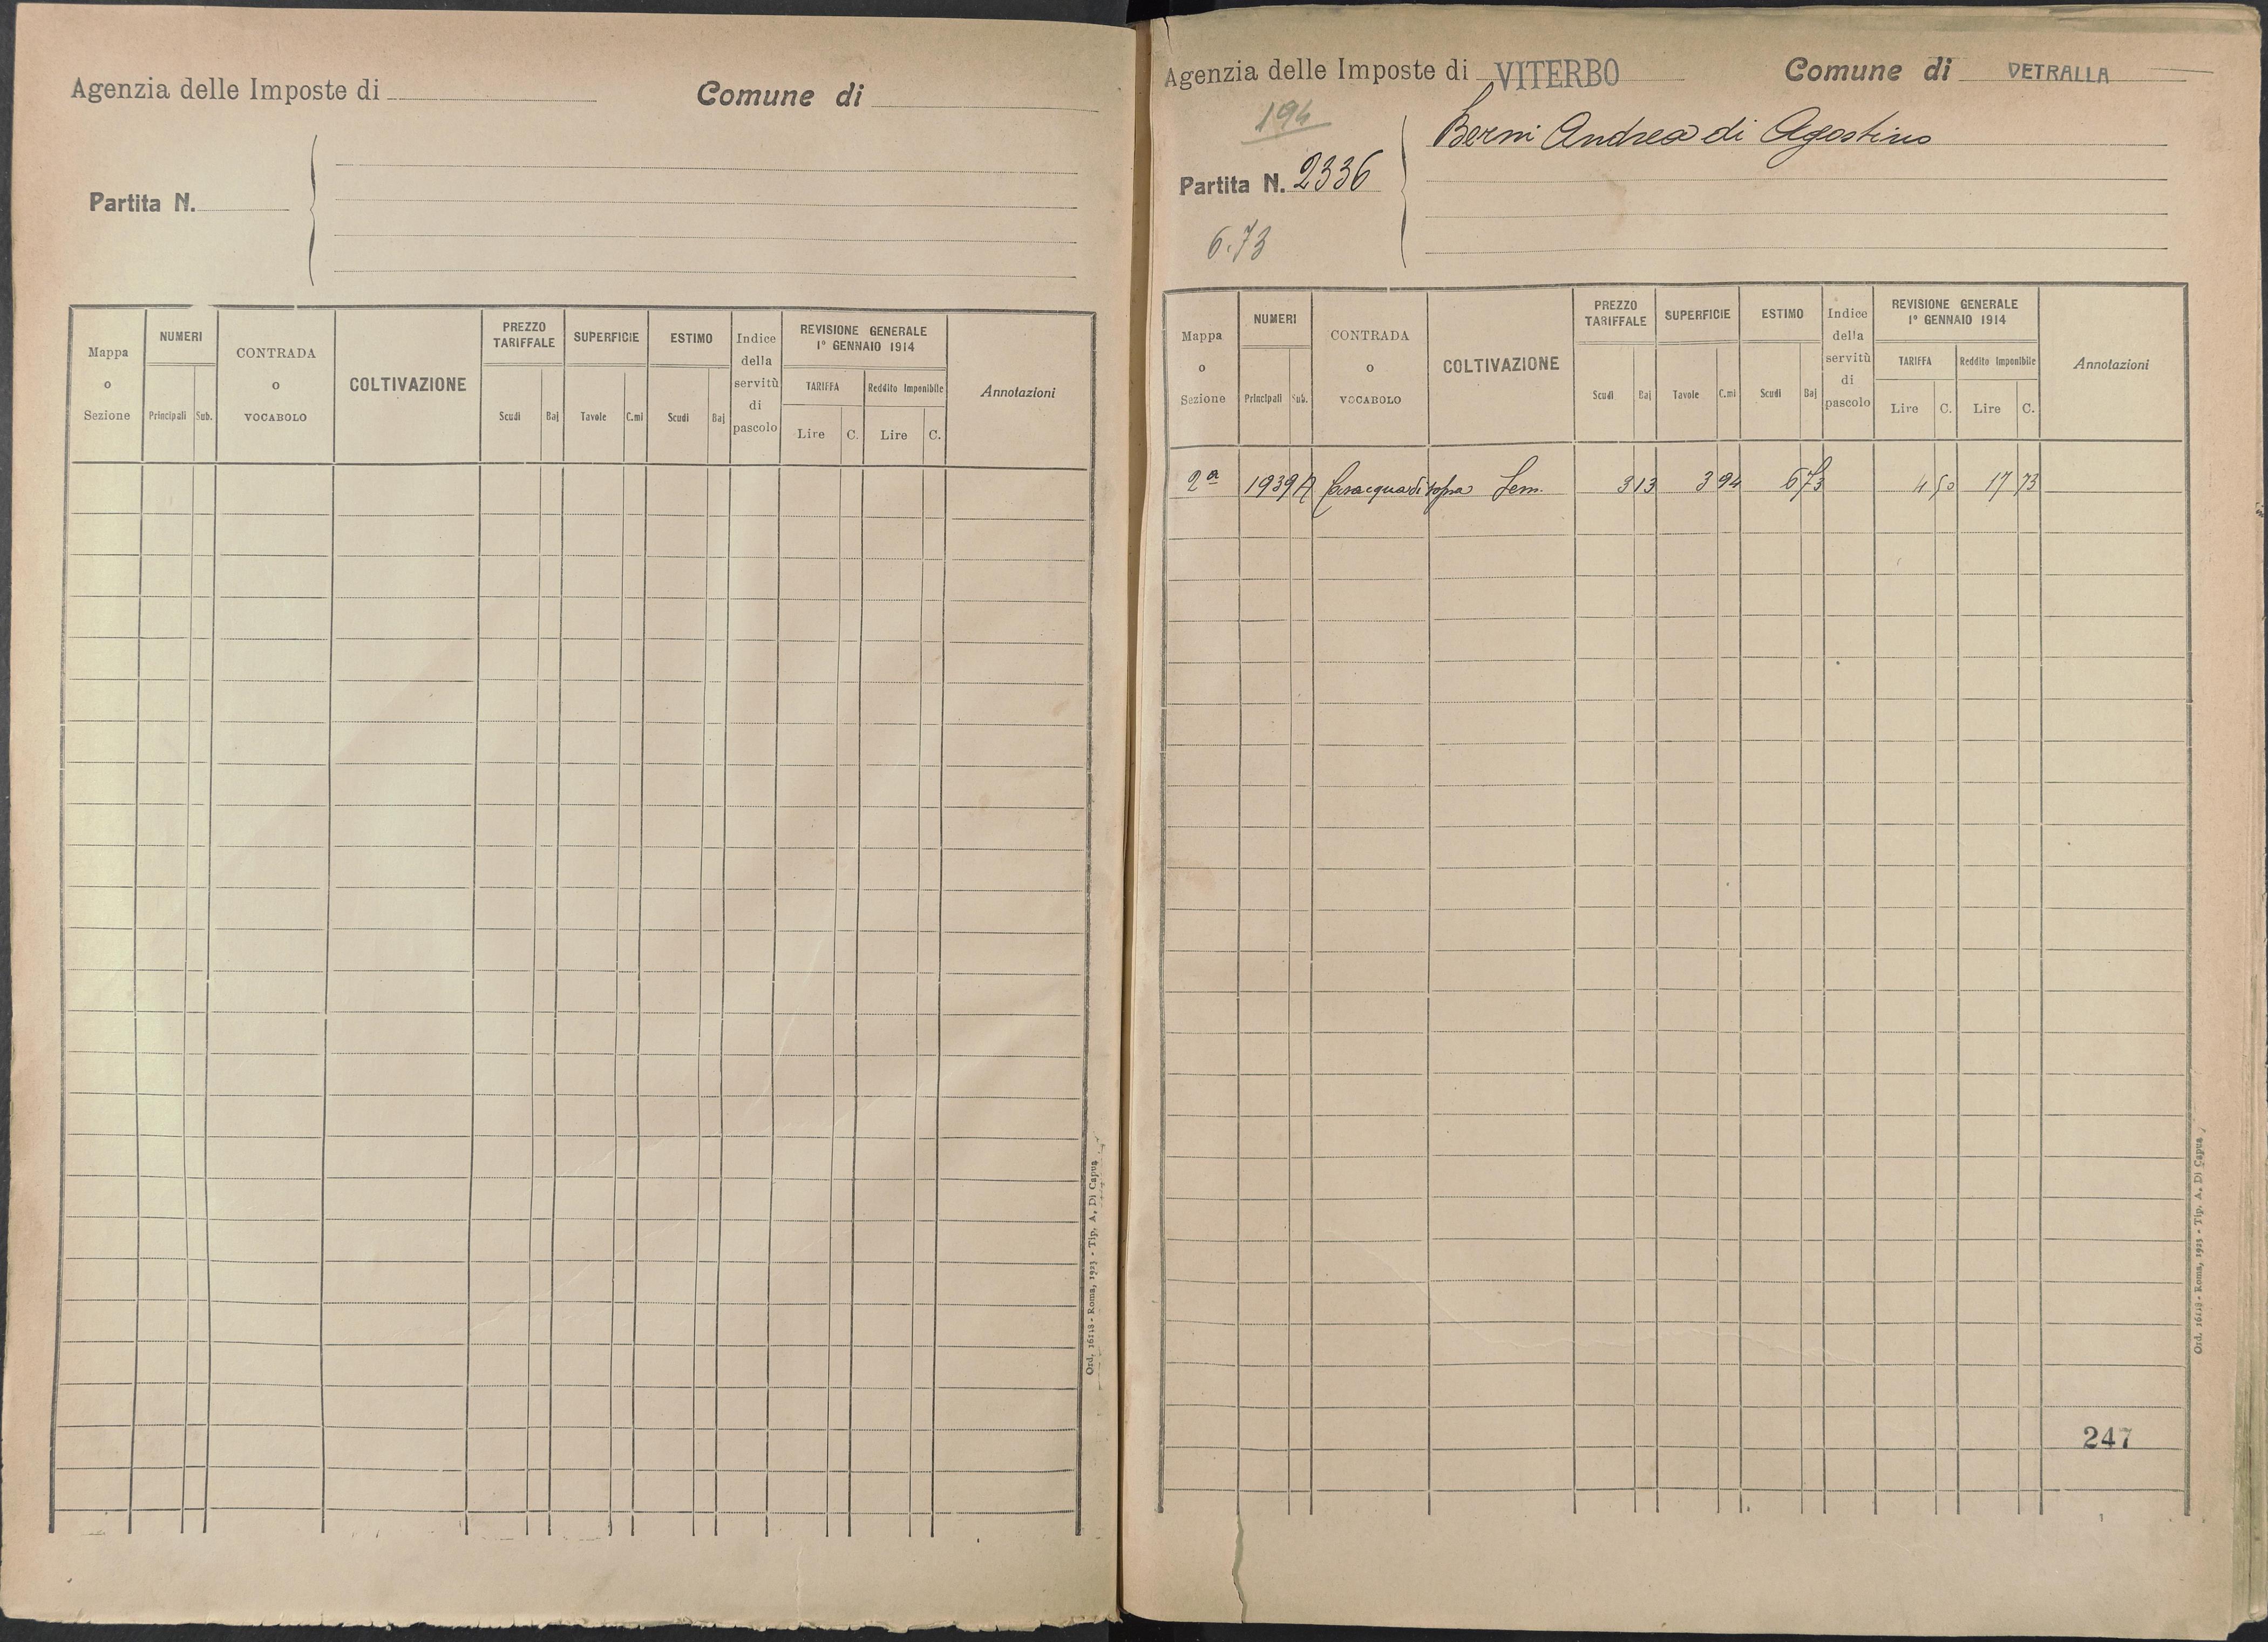 Agenzia delle Imposte di
Comune di
Partita N.
Mappa o Sezione
NUMERI
Principali Sub.
CONTRADA o VOCABOLO
COLTIVAZIONE
PREZZO TARIFFALE
Scudi Baj
SUPERFICIE
Tavole C.mi
ESTIMO
Scudi Baj
Indice della servitù di pascolo
REVISIONE GENERALE
1° GENNAIO 1914
TARIFFA
Lire C.
Reddito Imponibile
Lire C.
Annotazioni
Ord. 16118 - Roma, 1923 - Tip. A. Di Capua
Agenzia delle Imposte di VITERBO
Comune di VETRALLA
194
Berni Andrea di Agostino
Partita N. 2336
6.73
Mappa o Sezione
NUMERI
Principali Sub.
CONTRADA o VOCABOLO
COLTIVAZIONE
PREZZO TARIFFALE
Scudi Baj
SUPERFICIE
Tavole C.mi
ESTIMO
Scudi Baj
Indice della servitù di pascolo
REVISIONE GENERALE
1° GENNAIO 1914
TARIFFA
Lire C.
Reddito Imponibile
Lire C.
Annotazioni
2a 1939 di sopra Sem. 3 13 3 94 6 73 4 50 17 73
247
Ord. 16118 - Roma, 1923 - Tip. A. Di Capua